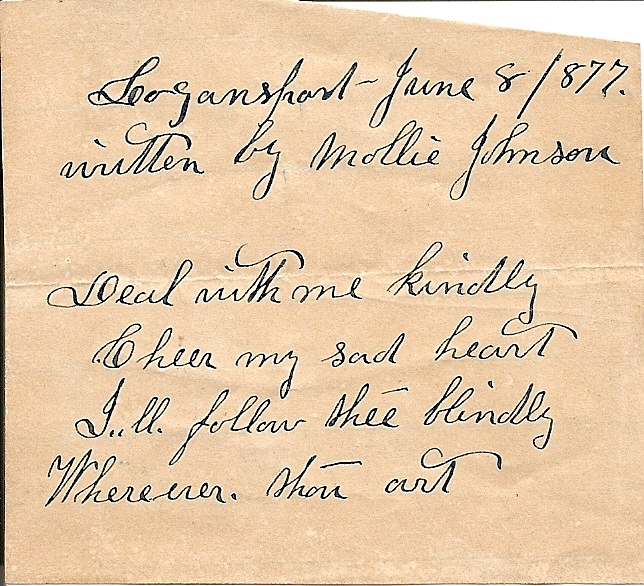 Logansport - June 8/877.
written by Mollie Johnson
Deal with me kindly
Cheer my sad heart
I..ll. follow thee blindly
Whereever. thou art